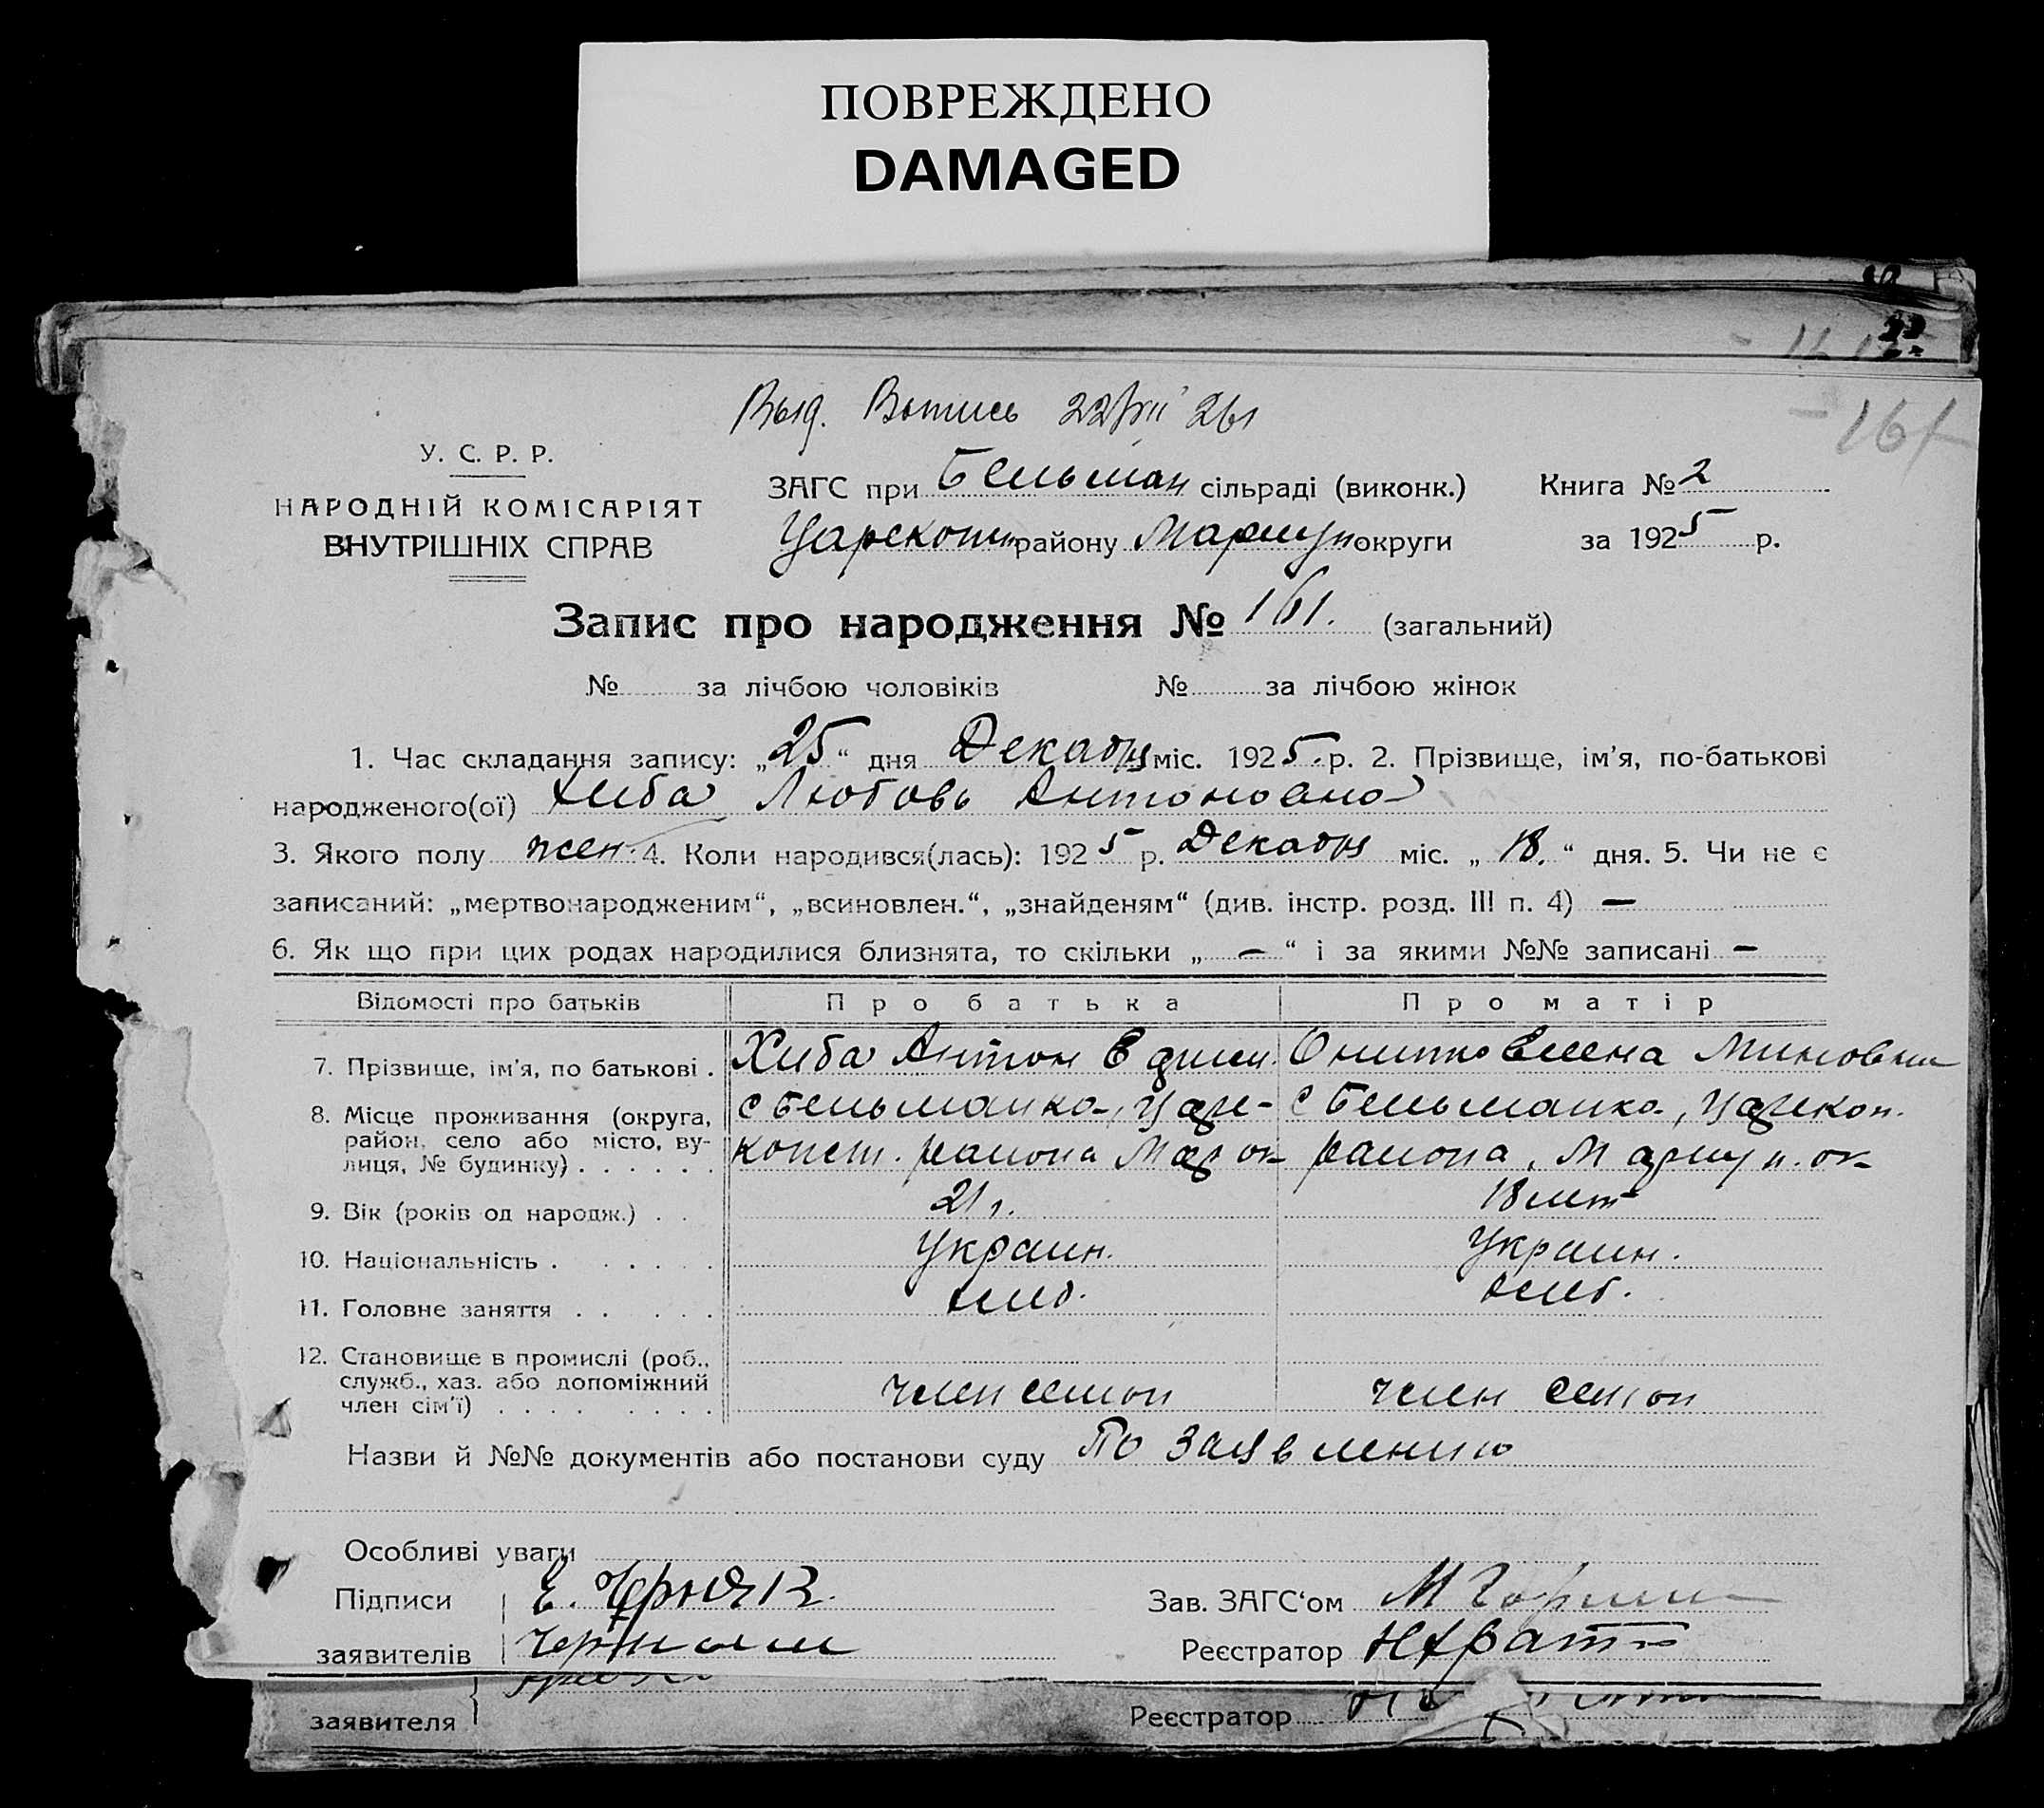 ПОВРЕЖДЕНО
DAMAGED
161
Выд. Выпись 22/VII 26
У. С. Р. Р.
НАРОДНІЙ КОМІСАРІЯТ
ВНУТРІШНІХ СПРАВ
ЗАГС при Бельман сільраді (виконк.)
Царекон району Мариуп округи
Книга № 2
за 1925 р.
Запис про народження № 161. (загальний)
№ за лічбою чоловіків № за лічбою жінок
1. Час складання запису: „25“ дня Декабря міс. 1925 р. 2. Прізвище, ім'я, по-батькові
народженого(ої) Хиба Любовь Антоновна
3. Якого полу жен. 4. Коли народився(лась): 1925 р. Декабря міс. „18.“ дня. 5. Чи не є
записаний: „мертвонародженим“, „всиновлен.“, „знайденям“ (див. інстр. розд. III п. 4) —
6. Як що при цих родах народилися близнята, то скільки „—“ і за якими №№ записані —
Відомості про батьків Про батька Про матір
7. Прізвище, ім'я, по батькові . Хиба Антон Онипко Елена Миновна
8. Місце проживання (округа, с Бельманка, Царе- с Бельманка, Царекон.
район, село або місто, ву-
лиця, № будинку) . . . . . . конст. района Мар ок района, Мариуп. ок
9. Вік (років од народж.) . . 21 г. 18 лет
10. Національність . . . . . . Украин. Украин.
11. Головне заняття . . . . . хлеб. хлеб.
12. Становище в промислі (роб.,
служб., хаз. або допоміжний
член сім'ї) . . . . . . . . член семьи член семьи
Назви й №№ документів або постанови суду По заявлению
Особливі уваги
Підписи Е. Зав. ЗАГС'ом М
заявителів Реєстратор
заявителя Реєстратор